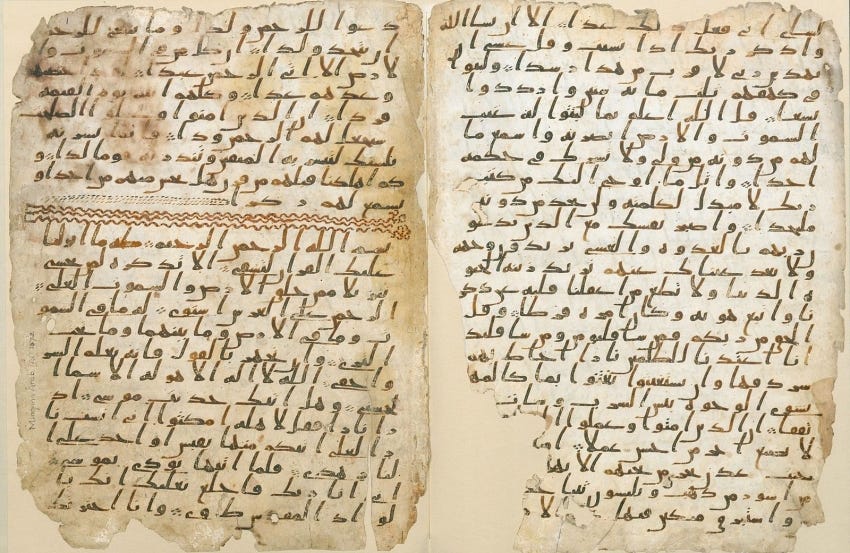 لشاي اني فعل ذلك غدا الا ان يشا الله
واذكر ربك اذا نسيت وقل عسى ان
يهدين ربي لاقرب من هذا رشدا ولبثوا
في كهفهم ثلث مايه سنين وازدادوا
تسعا قل الله اعلم بما لبثوا له غيب
السموت والارض ابصر به واسمع ما
لهم من دونه من ولي ولا يشرك في حكمه
احدا واتل ما اوحي اليك من كتب
ربك لا مبدل لكلمته ولن تجد من دونه
ملتحدا واصبر نفسك مع الذين يدعو
ن ربهم بالغدوه والعشي يريدون وجهه
ولا تعد عينك عنهم تريد زينه الحيو
ه الدنيا ولا تطع من اغفلنا قلبه عن ذكر
نا واتبع هويه وكان امره فرطا وقل
الحق من ربكم فمن شا فليومن ومن شا فليكفر
انا اعتدنا للظلمين نارا احاط بهم
سردقها وان يستغيثوا يغثوا بما كالمهل
يشوي الوجوه بئس الشرب وسات
تفقا ان الذين امنوا وعملوا ا
لا نضيع اجر من احسن عملا
جنت عدن تجري من تحتهم الانهر
من اسور من ذهب ويلبسون ثيبا خ
واستبرق متكين فيها الار
دعوا للرحمن ولدا وما ينبغي للرحمن
ان يتخذ ولدا ان كل من في السموت و
الارض الا اتي الرحمن عبدا لقد احصيهم
وعدهم عدا وكلهم اتيه يوم القيمه
فردا ان الذين امنوا وعملوا الصلحت
سيجعل لهم الرحمن ودا فانما يسرنه
بلسنك لتبشر به المتقين وتنذر به قوما لدا و
كم اهلكنا قبلهم من قرن هل تحس منهم من احد او
تسمع لهم ركزا
بسم الله الرحمن الرحيم طه ما انزلنا
عليك القران لتشقى الا تذكره لمن يخشى
تنزيلا ممن خلق الارض والسموت العلى
الرحمن على العرش استوى له ما في السمو
ت وما في الارض وما بينهما وما تحت
الثرى وان تجهر بالقول فانه يعلم السر
واخفى الله لا اله الا هو له الاسما ا
لحسنى وهل اتيك حديث موسى اذ
را نارا فقل لاهله امكثوا اني انست نا
را لعلي اتيكم منها بقبس او اجد على ا
لنار هدى فلما اتيها نودي يموسى
اني انا ربك فاخلع نعليك انك با
لواد المقدس طوى وانا اختر
Mingana Arab. 1572a